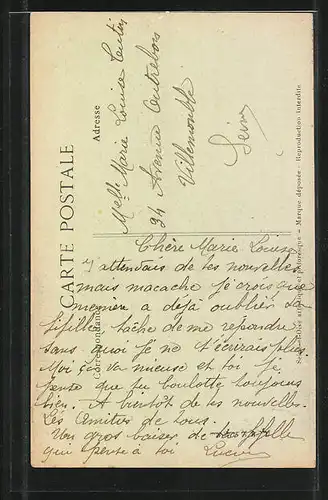 CARTE POSTALE
Correspondance
Adresse
Melle Marie Louise
94 Avenue Outrebois
Villemomble
Seine
Chère Marie Louise
J'attendais de tes nouvelles
mais macache je crois que
memère a déjà oubliée sa
fifille tache de me repondre
sans quoi je ne t'écrirais plus.
Moi ça va mieux et toi je
pense que tu boulotte toujours
bien. A bientôt de tes nouvelles.
Les Amitiés de tous.
Un gros baiser de ta fifille
qui pense à toi Lucie
Marque déposée - Reproduction interdite